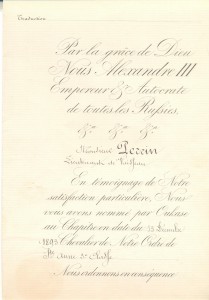 Traduction
Par la grâce de Dieu
Nous Alexandre III
Empereur & Autocrate
de toutes les Russies,
&ca &ca &ca
Monsieur Perrin
Lieutenant de
En témoignage de Notre
satisfaction particulière, Nous
vous avons nommé par Oukase
au Chapitre en date du 13
1893 Chevalier de Notre Ordre de
Ste Anne 3e
Nous ordonnons en conséquence